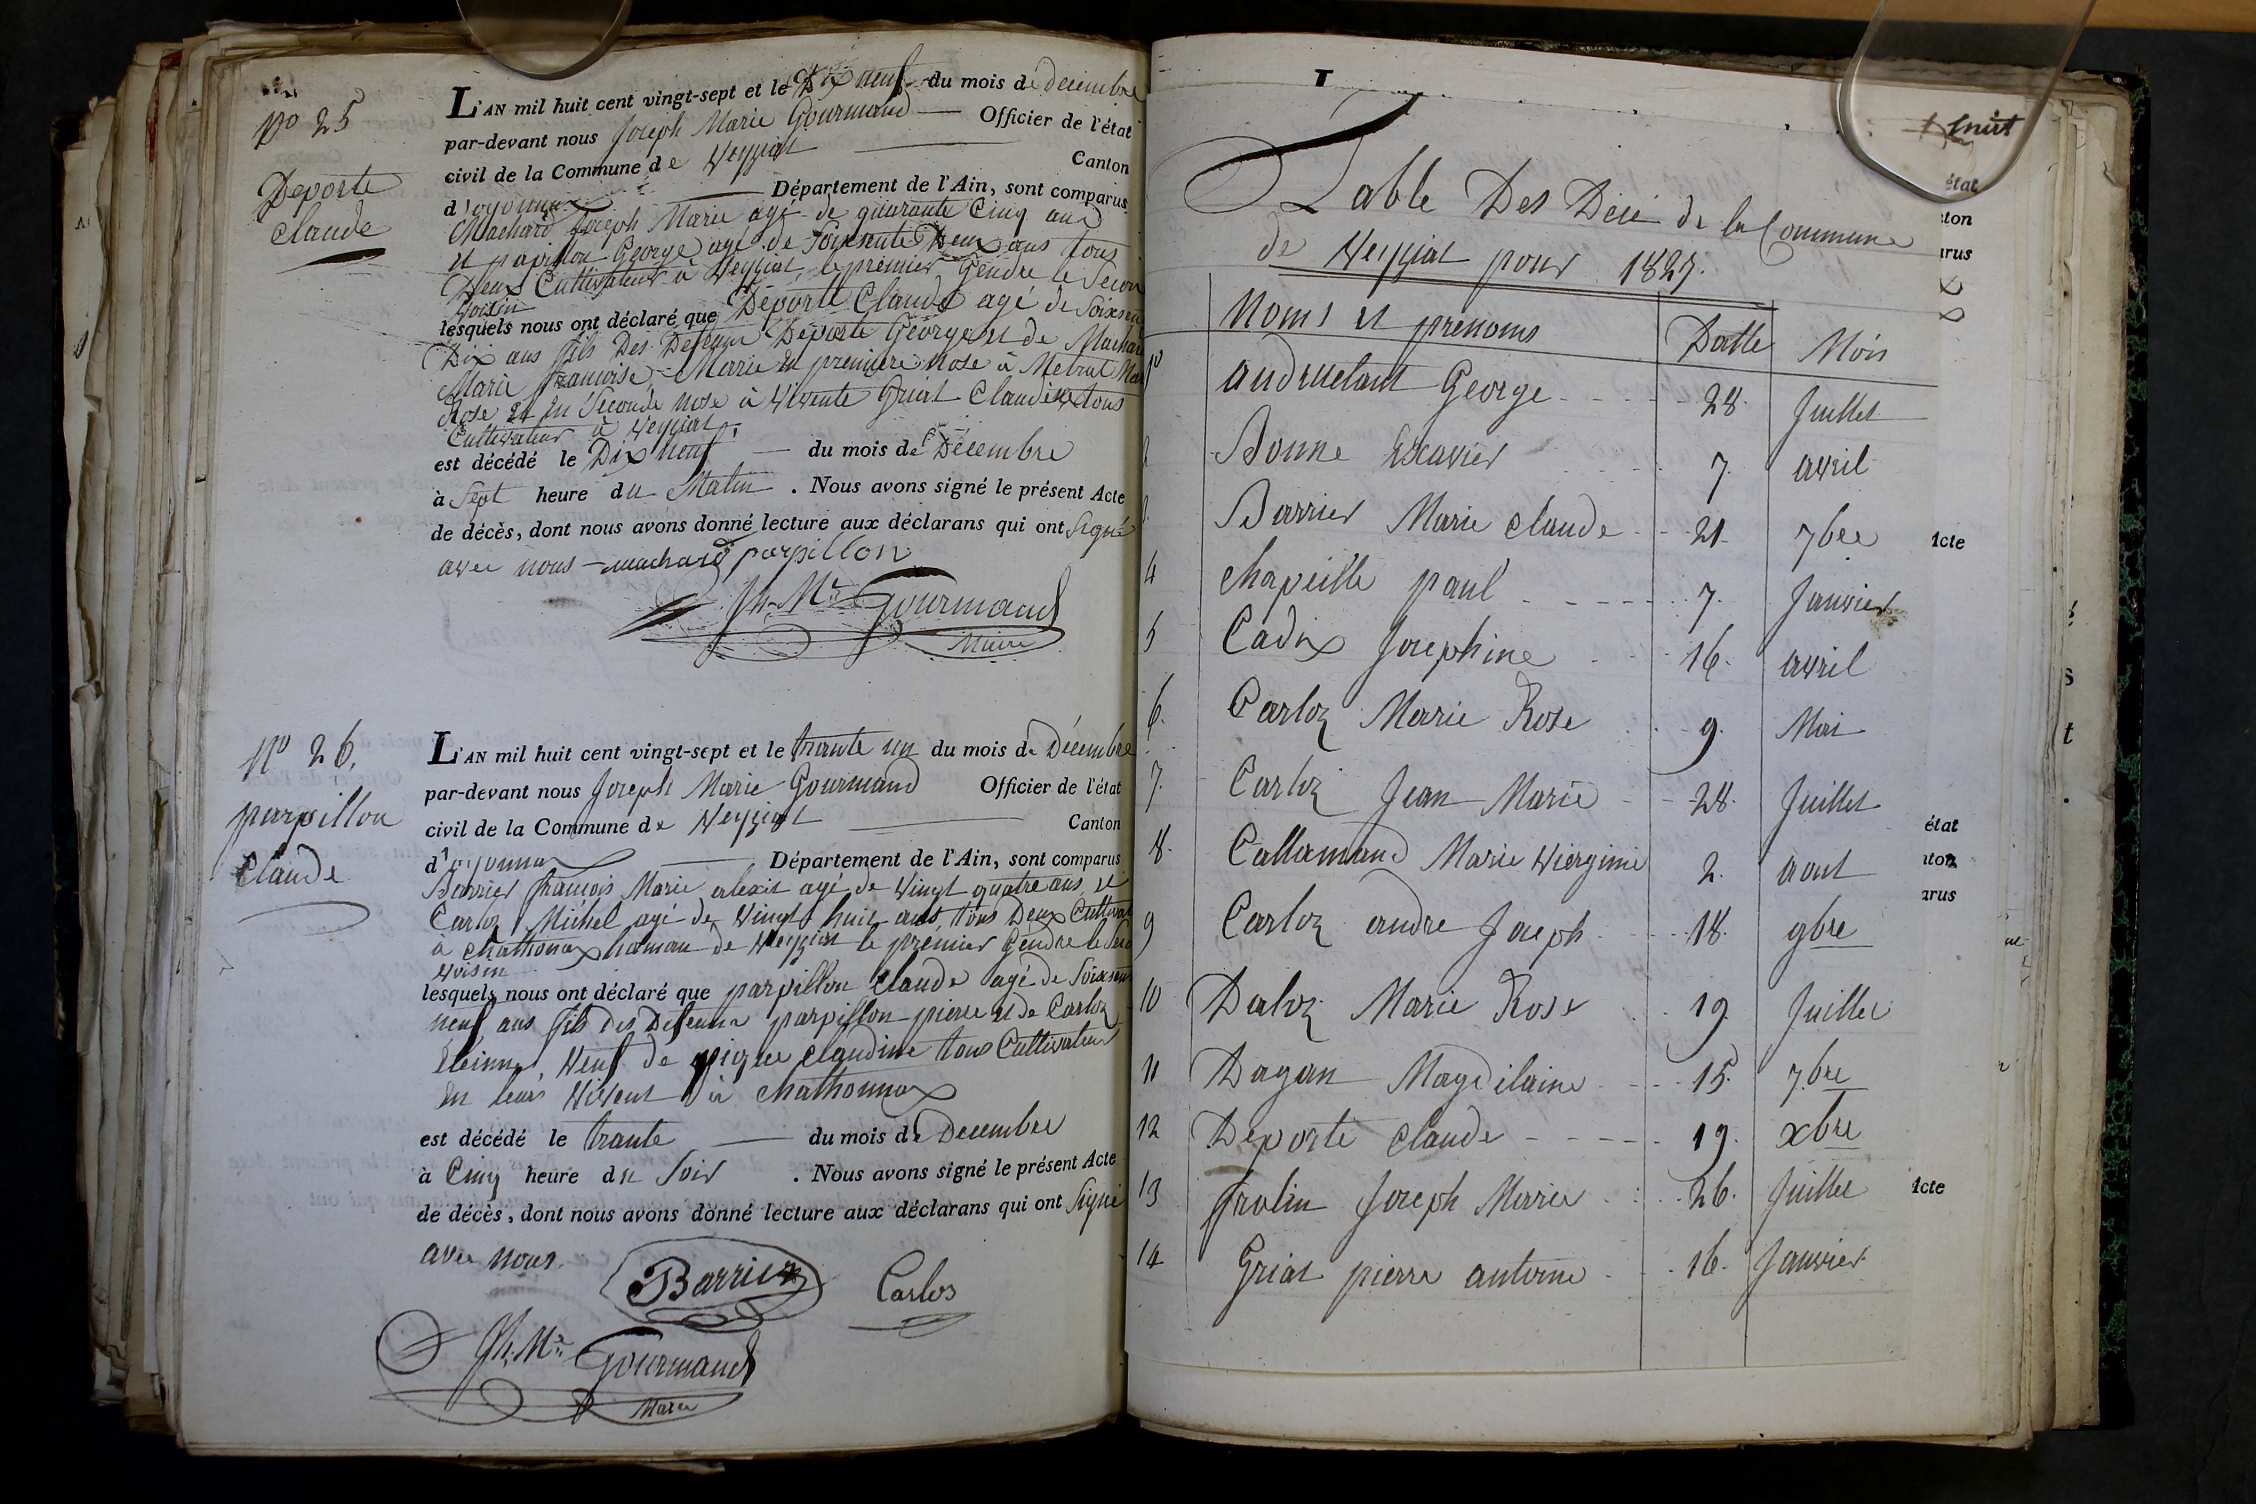 No 25
Deporte
Claude
L'AN mil huit cent vingt-sept et le Dix neuf du mois de decembre
par-devant nous Joseph Marie Gourmand Officier de l'état
civil de la Commune de Veyziat Canton
d'oyonnax Département de l'Ain, sont comparus
Machard Joseph Marie agé de quarante Cinq ans
et papillon George agé de Soixente Deux ans tous
Deux Cultivateur à Veyziat le premier Gendre le Secon
Voisin
lesquels nous ont déclaré que Déporte Claude agé de Soixsen
Dix ans fils Des Defeunt Deporte George et de Machar
Marie francoise, Marie en premiere nose à Metrat Mar
Rose et en Seconde nose à Vivente Griat Claudine tous
Cultivateur à Veyziat
est décédé le Dix neuf du mois de Décembre
à Sept heure du Matin . Nous avons signé le présent Acte
de décès, dont nous avons donné lecture aux déclarans qui ont Signé
avec nous machard parpillon
Jh. Mie Gourmand
Maire
No 26.
parpillon
Claude
L'AN mil huit cent vingt-sept et le trante un du mois de Décembre
par-devant nous Joseph Marie Gourmand Officier de l'état
civil de la Commune de Veyziat Canton
d'oyonnax Département de l'Ain, sont comparus
Barrier francois Marie alexit agé de Vingt quatre ans et
Carloz Michel agé de Vingt huit ans tous Deux Cultivat
à Chathonax hamau de Veyziat le premier Gendre le Seco
Voisin
lesquels nous ont déclaré que parpillon Claude agé de Soixsent
neuf ans fils des Defeunt parpillon pierre et de Carloz
Veuf de Claudine tous Cultivateur
En leurs Vivent à Chathonnax
est décédé le trante du mois de Decembre
à Cinq heure du Soir . Nous avons signé le présent Acte
de décès, dont nous avons donné lecture aux déclarans qui ont Signé
avec nous.
Barrier Carlos
Jh. Mie Gourmand
Maire
Table Des Décé de la Commune
de Veyziat pour 1827.
Noms et prenoms Datte Mois
1o George 28. Juillet
2 Bonne Excavier 7. avril
3 Barrier Marie Claude 21 7bre
4 Chapuille paul 7. Janvier
5 Cadix Josephine 16. avril
6. Carloz Marie Rose 9. Mai
7. Carloz Jean Marie 28. Juillet
8. Callamand Marie Viergimie 2. aout
9 Carloz andre Joseph 18. 9bre
10 Daloz Marie Rose 19 Juillet
11 Dagan Magdilaine 15. 7.bre
12 Deporte Claude 19. xbre
13 frolin Joseph Marie 26. Juillet
14 Griat pierre antoine 16. Janvier
état
ton
arus
Acte
état
nton
arus
Acte